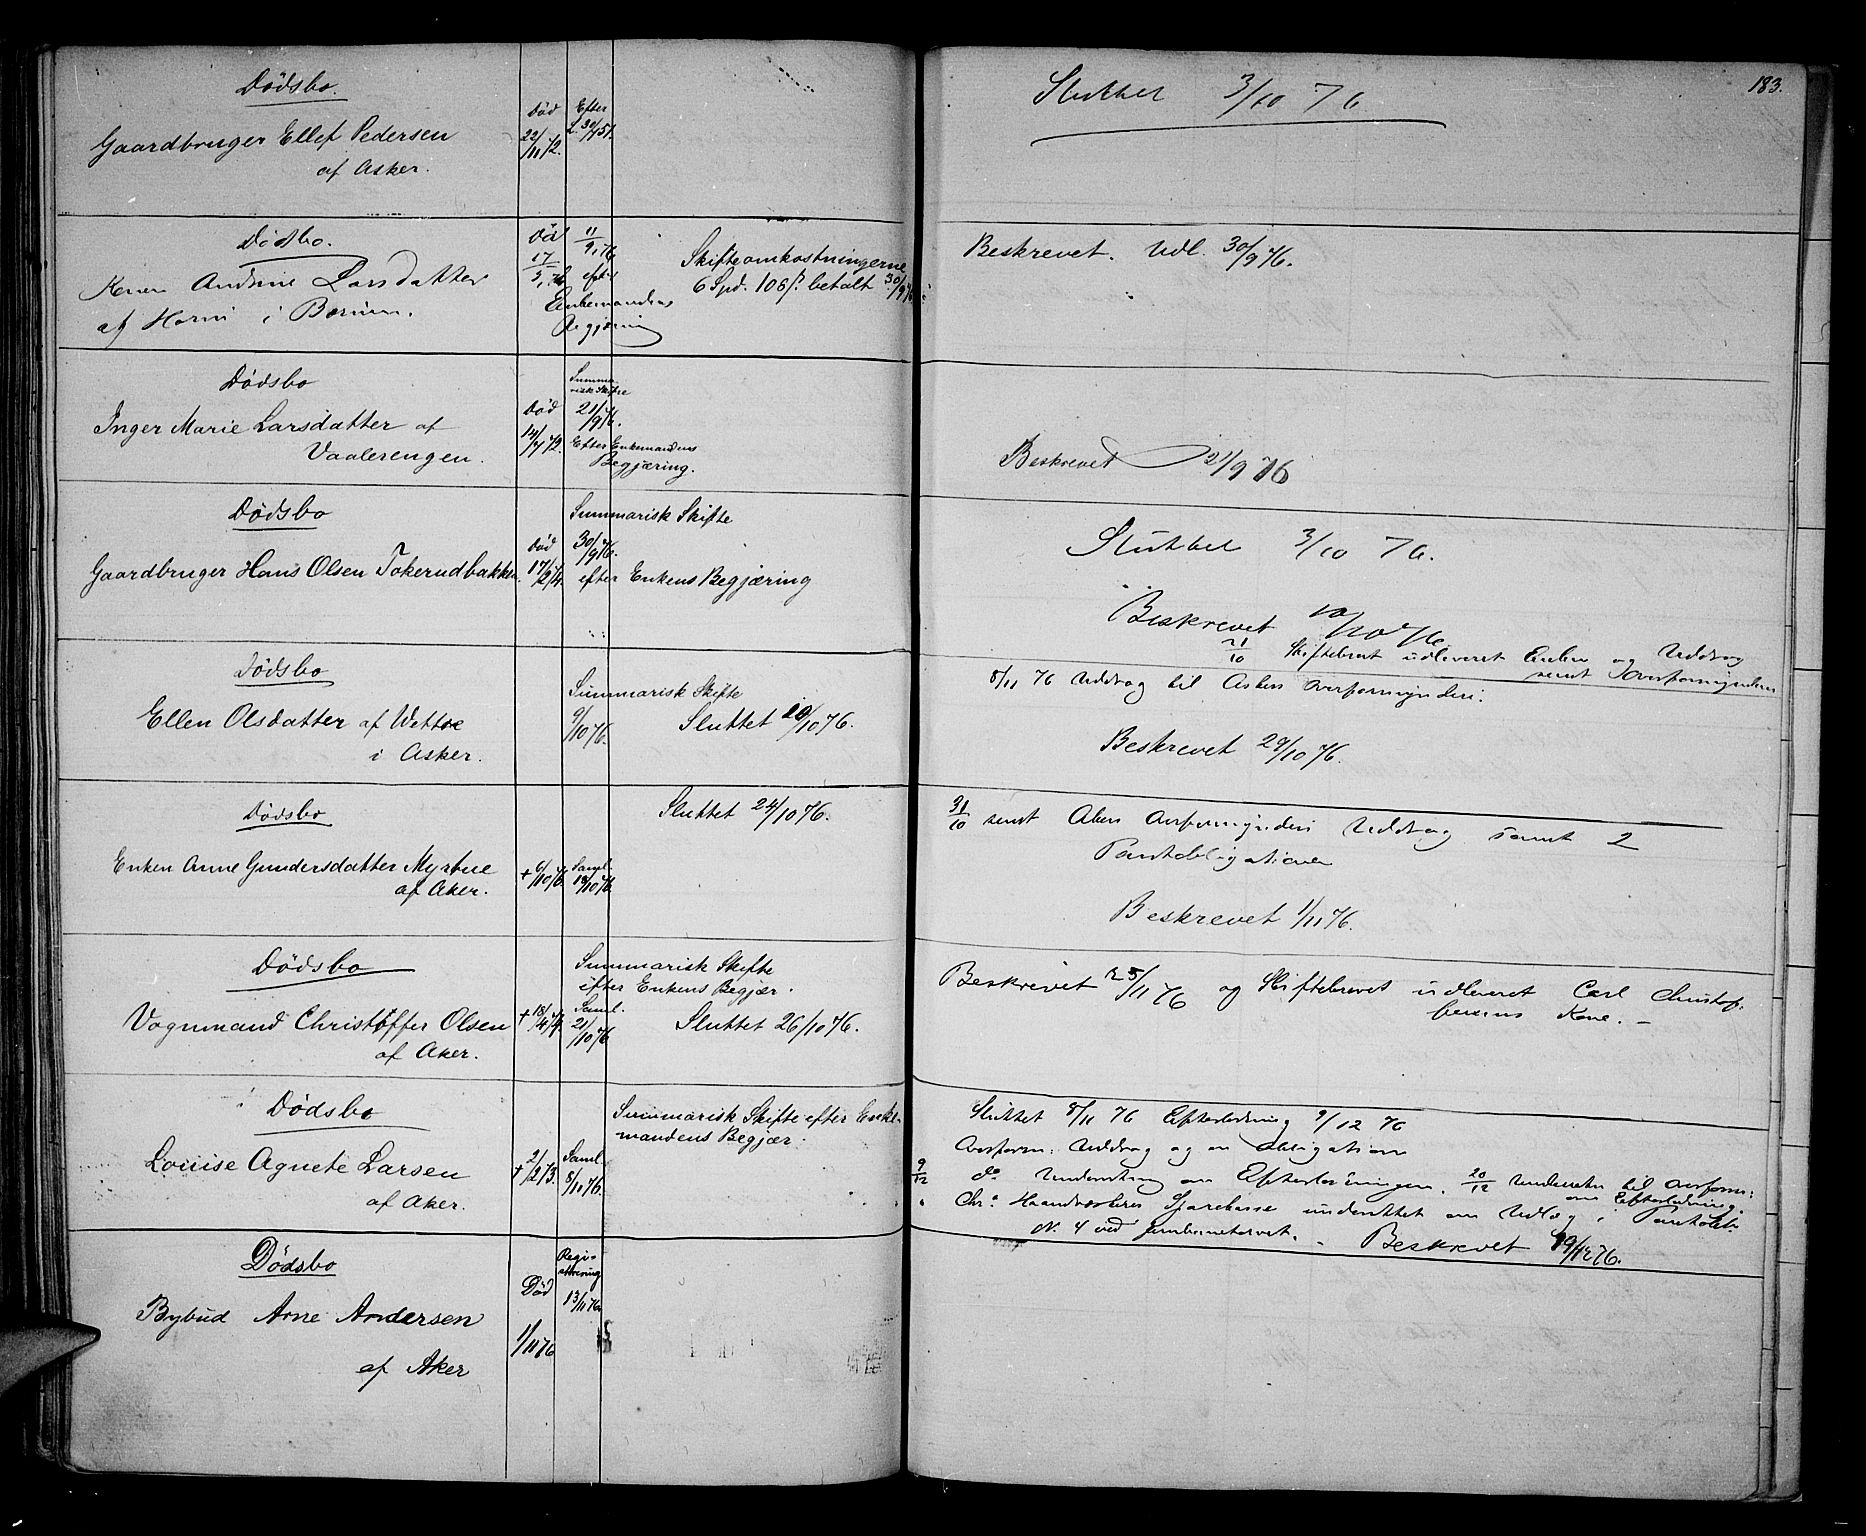 183.
Dødsbo.
Gaardbruger Ellef Pedersen
af Asker.
Død
22/11 72.
Efter
Sluttet 3/10 76
Dødsbo.
Konen Andrine Larsdatter
af Horni i Bærum.
Død
17/3,76
11/9,76
efter
Enkemandens
Begjæring
Skifteomkostningerne
6 Spd. 106 ß. betalt 30/9 76
Beskrevet. Udl. 30/9 76.
Dødsbo
Inger Marie Larsdatter af
Vaalerengen.
Død
14/7 72.
Summa-
risk Skifte
21/9 76.
Efter Enkemandens
Begjæring.
Beskrevet 21/9 76
Dødsbo
Gaardbruger Hans Olsen Tokerudbakken.
Død
17/2 74.
Summarisk Skifte
30/9 76.
efter Enkens Begjæring
Sluttet 3/10 76.
Beskrevet 10/10 76
21/10 Skiftebrevet udleveret Enken og Uddrag
sendt Overformynderi
Dødsbo
Ellen Olsdatter af Wettre
i Asker.
Summarisk Skifte
9/10 76.
Sluttet 20/10 76.
8/11 76 Uddrag til Askers Overformynderi.
Beskrevet 29/10 76.
Dødsbo
Enken Anne Gundersdatter Myrtue
af Aker.
+ 6/10 76.
Saml.
18/10 76.
Sluttet 24/10 76.
31/10 sendt Akers Overformynderi Uddrag samt 2
Pantobligationer
Beskrevet 1/11 76.
Dødsbo
Vognmand Christoffer Olsen
af Aker.
+ 18/4 74.
Summarisk Skifte
efter Enkens Begjær.
Saml.
21/10 76
Sluttet 26/10 76.
Beskrevet 25/11 76 og Skiftebrevet udleveret Carl Christof-
fersens Kone. —
Dødsbo
Louise Agnete Larsen
af Aker.
+ 2/2 73.
Saml.
8/10 76.
Summarisk Skifte efter Enke-
mandens Begjær.
Sluttet 8/11 76 Efterlodning 9/12 76
Overform: Uddrag og en Obligation
9/12 do Underretning om Efterlodningen. 20/12 Underretn til Overform:
om Efterlodning.
" Chra Haandværkeres Sparekasse underrettet om Udlæg i Pantobl.
N. 4 ved Jernbanetorvet. - Beskrevet 19/12 76.
Dødsbo
Bybud Arne Andersen
af Aker
Død
1/11 76
Regi-
strering
13/11 76.